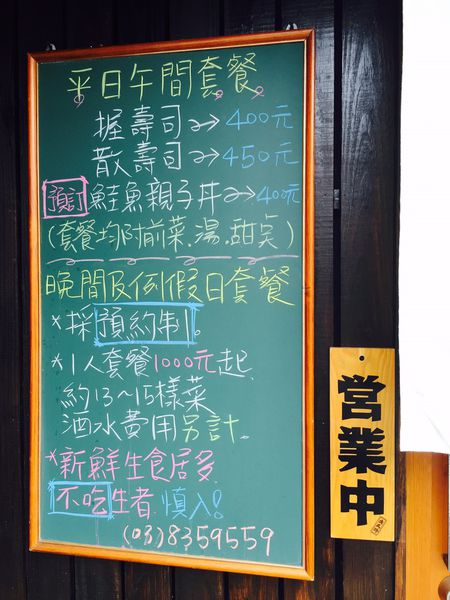 平日午間套餐
握壽司→400元
散壽司→450元
預訂 鮭魚親子丼→400元
(套餐均附前菜.湯.甜点)
晚間及例假日套餐
*採預約制。
*1人套餐1000元起
約13~15樣菜
酒水費用另計.
*新鮮生食居多
不吃生者慎入!
(03)8359559
営業中